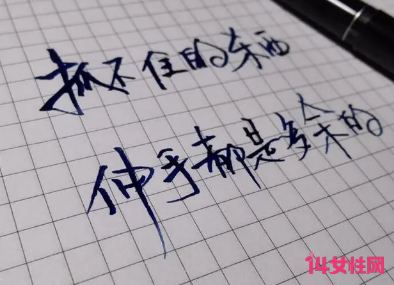 抓不住的东西
伸手都是多余的
14女性网